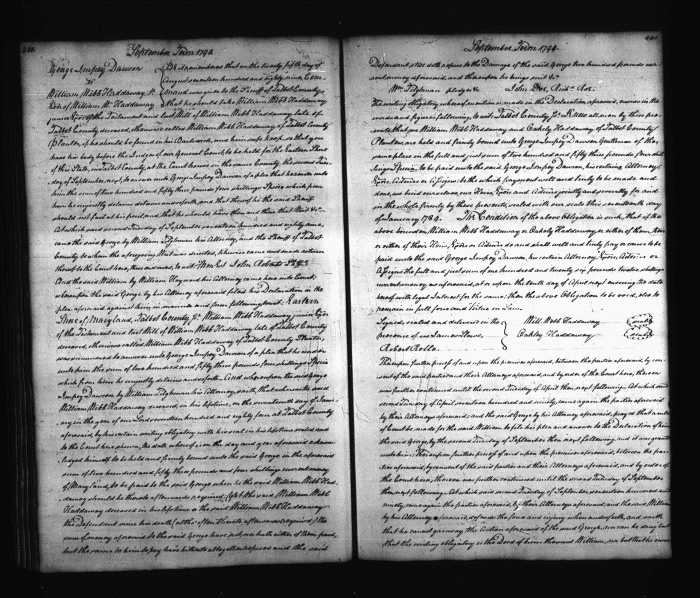 September Term 1790.
George Impey Dawson
vs
William Webb Haddaway Jr
Exr of William W. Haddaway
Be it remembered that on the twenty fifth day of
August seventeen hundred and eighty nine, Com-
mand was given to the Sheriff of Talbot County,
that he should take William Webb Haddaway
junior Exr of the Testament and last Will of William Webb Haddaway late of
Talbot County deceased, otherwise called William Webb Haddaway of Talbot County
Planter, if he should be found in his Bailiwick, and him safe keep, so that he
have his body before the Judges of our General Court, to be held for the Eastern Shore
of this State, in Talbot County, at the Court house in the same County, the second Tues-
day of September next, to answer unto George Impey Dawson of a plea that he render unto
him the sum of two hundred and fifty three pounds four shillings Specie which from
him he unjustly detains and so forth, and that the said Sheriff
should not fail at his peril and that he should have then and there that Writ &c.
At which said second Tuesday of September seventeen hundred and eighty nine,
came the said George by William Tilghman his Attorney, and the Sheriff of Talbot
County to whom the aforegoing Writ was directed, likewise came and made return
thereof to the Court here, thus endorsed, to wit
And the said William by William Hayward his Attorney came here into Court,
whereupon the said George by his Attorney aforesaid filed his Declaration in the
plea aforesaid against him, in manner and form following to wit. Eastern
Shore of Maryland, Talbot County Sc. William Webb Haddaway junior Exr
of the Testament and last Will of William Webb Haddaway late of Talbot County
deceased, otherwise called William Webb Haddaway of Talbot County Planter,
was summoned to answer unto George Impey Dawson of a plea that he render
unto him the sum of two hundred and fifty three pounds four shillings Specie
which from him he unjustly detains and so forth. And whereupon the said George
Impey Dawson by William Tilghman his Attorney, saith, that whereas the said
William Webb Haddaway deceased, in his lifetime, on the seventeenth day of Janu-
ary in the year of our Lord seventeen hundred and eighty four at Talbot County
aforesaid, by his certain writing obligatory with his seal in his lifetime sealed and
to the Court here shewn, the date whereof is on the day and year aforesaid acknow-
ledged himself to be held and firmly bound unto the said George in the aforesaid
sum of two hundred and fifty three pounds and four shillings current money
of Maryland, to be paid to the said George when he the said William Webb Had-
daway should be thereto afterwards required, Yet the said William Webb
Haddaway deceased in his lifetime or the said William Webb Haddaway
the Defendant since his death (altho' often thereto afterwards required) the
sum of money aforesaid to the said George have not, nor hath either of them paid,
but the same to him to pay have hitherto altogether refused and the said
September Term 1790.
Defendant still doth refuse to the Damage of the said George two hundred pounds cur-
rent money aforesaid, and thereupon he brings suit &c.
Wm. Tilghman pl. &c. John Doe, Richd. Roe.
The writing obligatory whereof mention is made in the Declaration aforesaid, ensues in the
words and figures following, to wit. Talbot County Sc. Know all men by these
presents that we William Webb Haddaway and Oakley Haddaway of Talbot County
Planters, are held and firmly bound unto George Impey Dawson Gentleman of the
same place in the full and just sum of two hundred and fifty three pounds four shil-
lings Specie, to be paid unto the said George Impey Dawson, his certain Attorney,
Exors, Admors or Assigns to the which payment well and truly to be made and
done, we bind ourselves, our Heirs, Exors and Admors jointly and severally for and
in the whole firmly by these presents, sealed with our seals this seventeenth day
of January 1784. The Condition of the above Obligation is such, that if the
above bound William Webb Haddaway or Oakley Haddaway or either of them, their
or either of their Heirs, Exors or Admors do and shall well and truly pay or cause to be
paid unto the said George Impey Dawson, his certain Attorney, Exors, Admors or
Assigns the full and just sum of one hundred and twenty six pounds twelve shillings
current money, as aforesaid, at or upon the tenth day of April next ensuing the date
hereof with legal Interest for the same; then the above Obligation to be void, else to
remain in full force and Virtue in Law.
Signed, sealed and delivered in the
presence of
Robert Rolle.
Will. Webb Haddaway (seal)
Oakley Haddaway (seal)
Thereupon further process of and upon the premises aforesaid, between the parties aforesaid, by con-
sent of the said parties and their Attorneys aforesaid, and by order of the Court here, thereon
was further continued until the second Tuesday of April then next following. At which said
second Tuesday of April seventeen hundred and ninety, came again the parties aforesaid
by their Attorneys aforesaid; and the said George by his Attorney aforesaid prays that a rule
of Court be made for the said William to file his plea and answer to the Declaration of him
the said George by the second Tuesday of September then next following, and it was granted
unto him. Thereupon further process of and upon the premises aforesaid, between the par-
ties aforesaid, by consent of the said parties and their Attorneys aforesaid, and by order of
the Court here, thereon was further continued until the second Tuesday of September
then next following. At which said second Tuesday of September, seventeen hundred and
ninety came again the parties aforesaid, by their Attorneys aforesaid; and the said William
by his Attorney aforesaid defends the force and injury when and so forth, and saith
that he cannot gainsay the Action aforesaid of the said George, nor can he deny but
that the writing obligatory is the Deed of him the said William, nor but that he owes